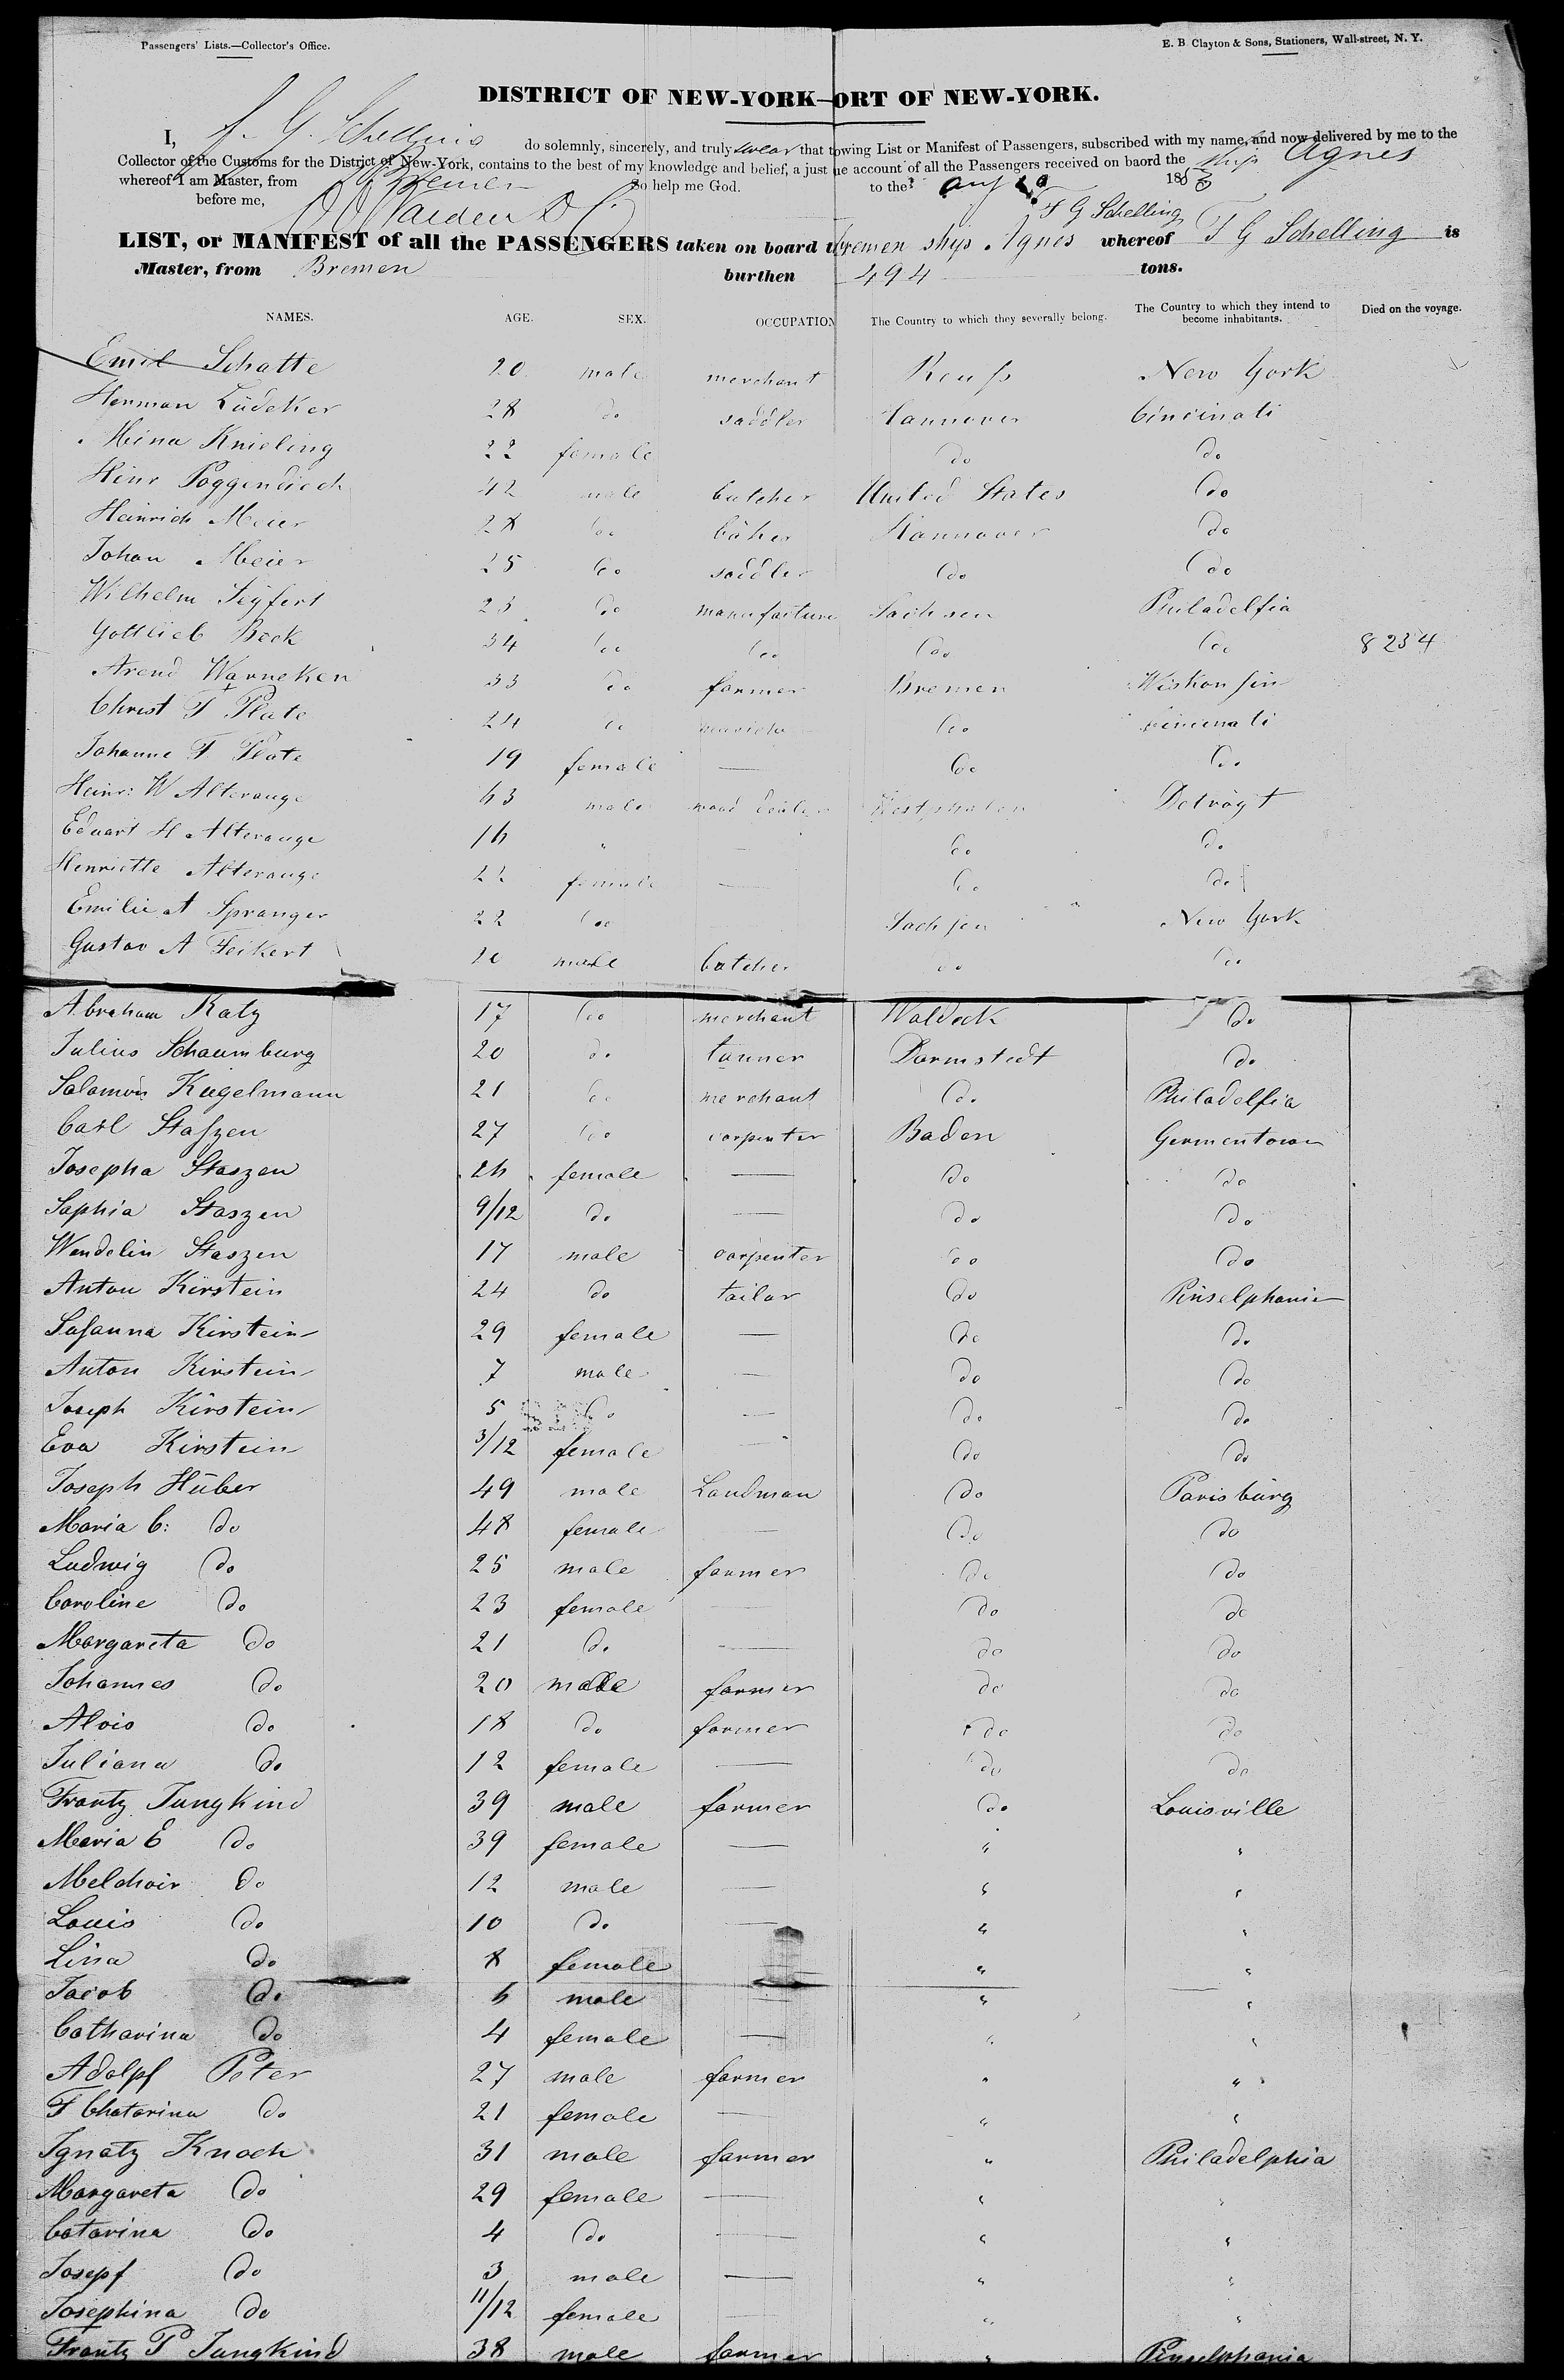 Passengers' Lists.—Collector's Office.
E. B Clayton & Sons, Stationers, Wall-street, N. Y.
DISTRICT OF NEW-YORK—ORT OF NEW-YORK.
I, J. G. Schelling do solemnly, sincerely, and truly swear that towing List or Manifest of Passengers, subscribed with my name, and now delivered by me to the
Collector of the Customs for the District of New-York, contains to the best of my knowledge and belief, a just ue account of all the Passengers received on baord the ship Agnes
whereof I am Master, from Bremen So help me God. to the Aug 185
before me, T G Schelling
LIST, or MANIFEST of all the PASSENGERS taken on board Bremen ship Agnes whereof T G Schelling is
Master, from Bremen burthen 494 tons.
NAMES. AGE. SEX. OCCUPATION The Country to which they severally belong. The Country to which they intend to become inhabitants. Died on the voyage.
Emil Schatte 20 male merchant Reuss New York
Herman Lüdeker 28 do saddler Hannover Cincinati
Mina Knieling 22 female do do
Heinr Poggendieck 42 male butcher United States do
Heinrich Meier 28 do bäker Hannover do
Johan Meier 25 do saddler do do
Wilhelm Seyfert 23 do manufacture Sachsen Philadelfia
Gottlieb Beck 34 do do do do 8234
Arend Warneken 33 do farmer Bremen Wiskonsin
Christ F Plate 24 do do Cincinati
Johanne F Plate 19 female — do do
Heinr: W Alterauge 63 male wood dealer Westphalen Detroyt
Eduart H Alterauge 16 " — do do
Henriette Alterauge 22 female — do do
Emilie A Spranger 22 do Sachsen New York
Gustav A Seikert 20 male butcher do do
Abraham Katz 17 do merchant Waldeck do
Julius Schaumburg 20 do tanner Darmstedt do
Salamon Kugelmann 21 do merchant do Philadelfia
Carl Staszen 27 do carpenter Baden Germentown
Josepha Staszen 26 female — do do
Sophia Staszen 9/12 do — do do
Wendelin Staszen 17 male carpenter do do
Anton Kirstein 24 do tailor do Pinselphania
Susanna Kirstein 29 female — do do
Anton Kirstein 7 male — do do
Joseph Kirstein 5 do — do do
Eva Kirstein 3/12 female — do do
Joseph Hüber 49 male Landman do Parisbürg
Maria C: do 48 female — do do
Ludwig do 25 male farmer do do
Caroline do 23 female — do do
Margareta do 21 do — do do
Johannes do 20 male farmer do do
Alois do 18 do farmer do do
Juliana do 12 female — do do
Frantz Jungkind 39 male farmer do Louisville
Maria E do 39 female — " "
Melchoir do 12 male — " "
Louis do 10 do — " "
Lina do 8 female " "
Jacob do 6 male — " "
Catharina do 4 female — " "
Adolpf Peter 27 male farmer " "
F Chatarina do 21 female — " "
Ignatz Knoch 31 male farmer " Philadelphia
Margareta do 29 female — " "
Catarina do 4 do — " "
Josepf do 3 male — " "
Josephina do 11/12 female — " "
Frantz P Jungkind 38 male farmer " Pinselphania